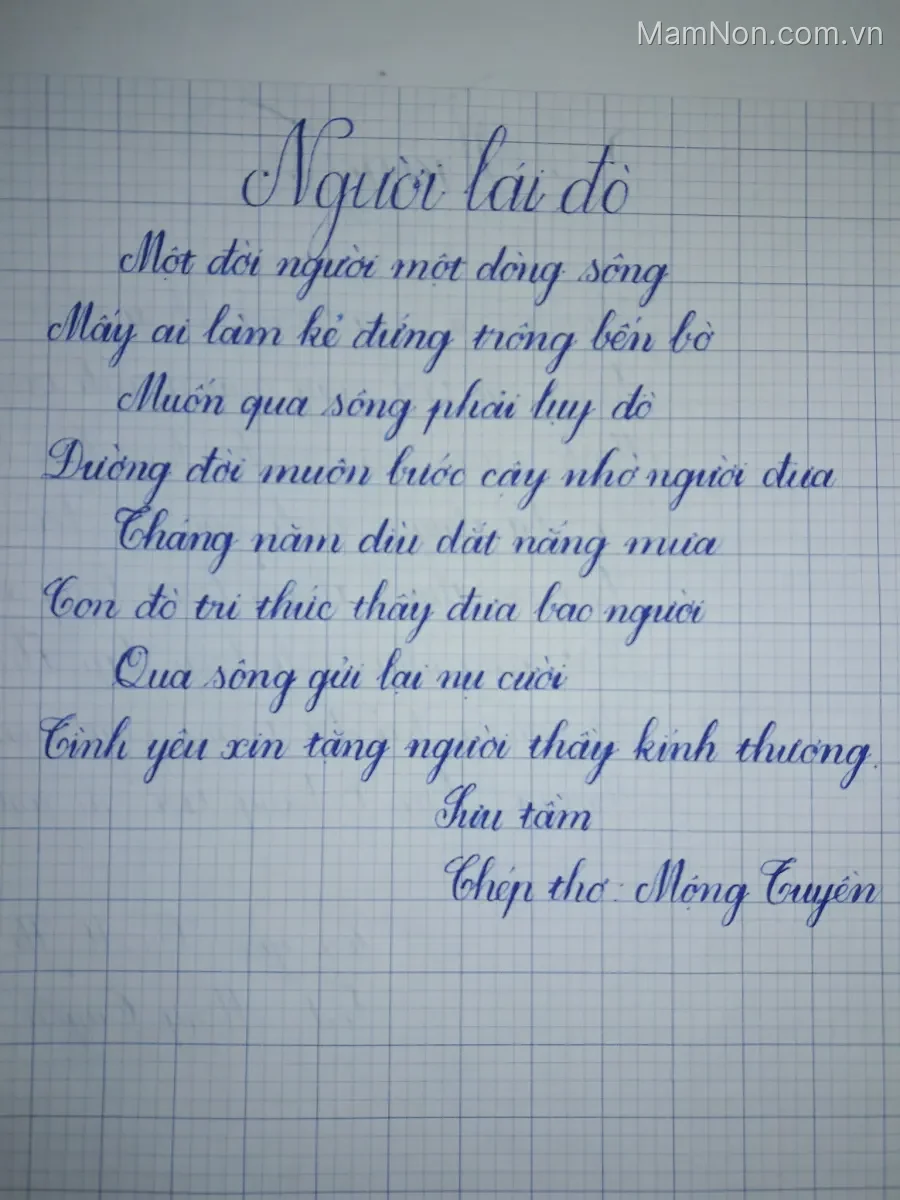 MamNon.com.vn
Người lái đò
Một đời người một dòng sông
Mấy ai làm kẻ đứng trông bến bờ
Muốn qua sông phải lụy đò
Đường đời muôn bước cậy nhờ người đưa
Tháng năm dìu dắt nắng mưa
Con đò tri thức thầy đưa bao người
Qua sông gửi lại nụ cười
Tình yêu xin tặng người thầy kính thương.
Sưu tầm
Chép thơ: Mộng Tuyền